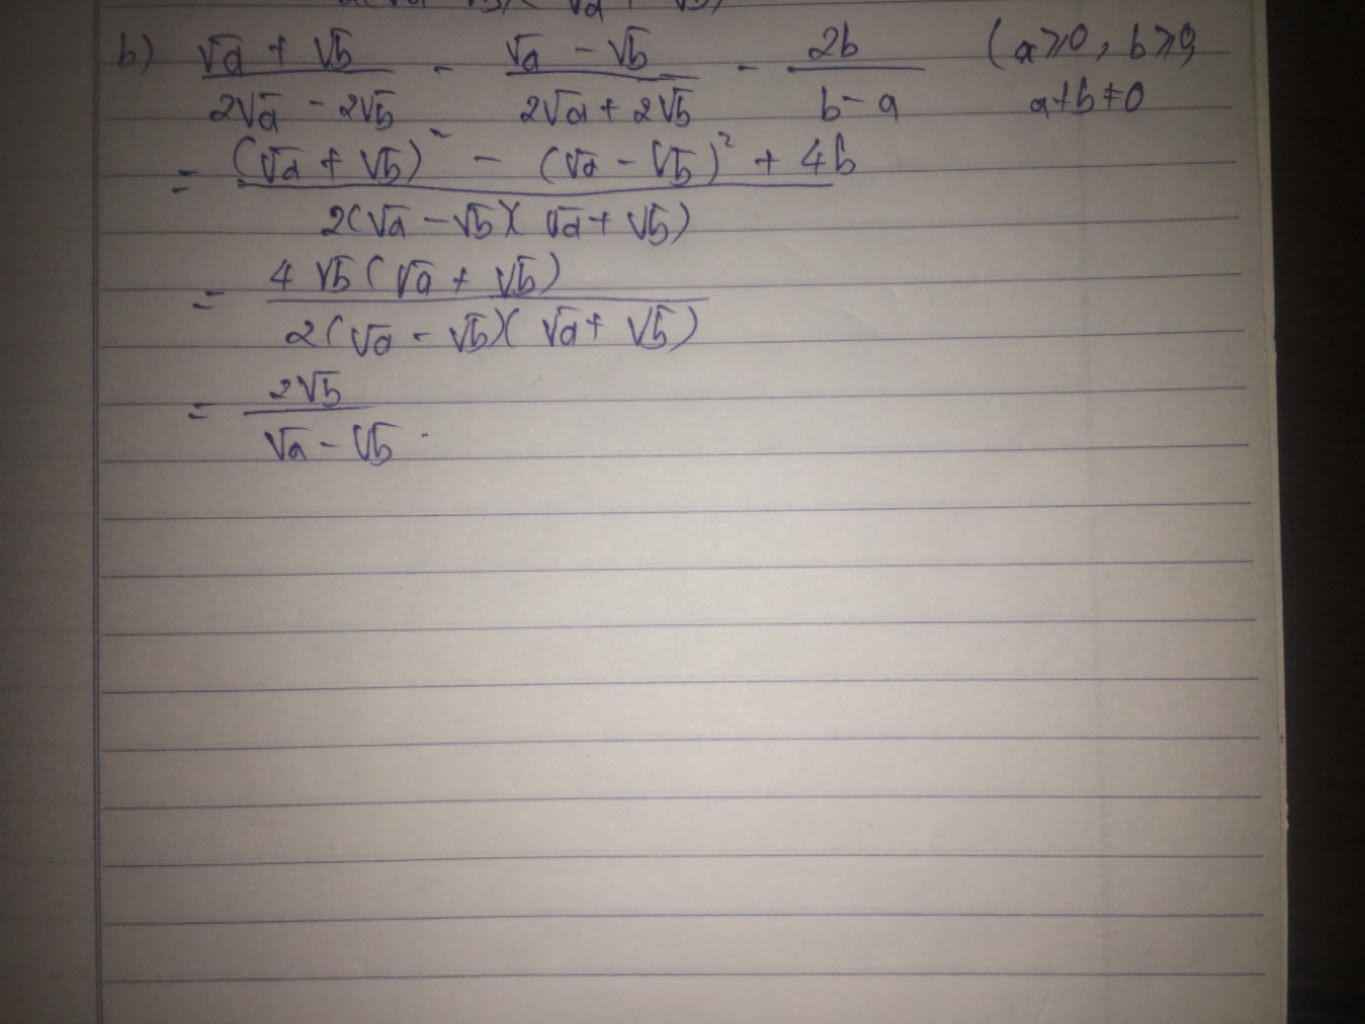 b) (√a + √b)/(2√a - 2√b) - (√a - √b)/(2√a + 2√b) - 2b/(b - a) (a ≥ 0, b ≥ 0
a + b ≠ 0
= ((√a + √b)² - (√a - √b)² + 4b)/(2(√a - √b)(√a + √b))
= (4√b(√a + √b))/(2(√a - √b)(√a + √b))
= 2√b/(√a - √b).